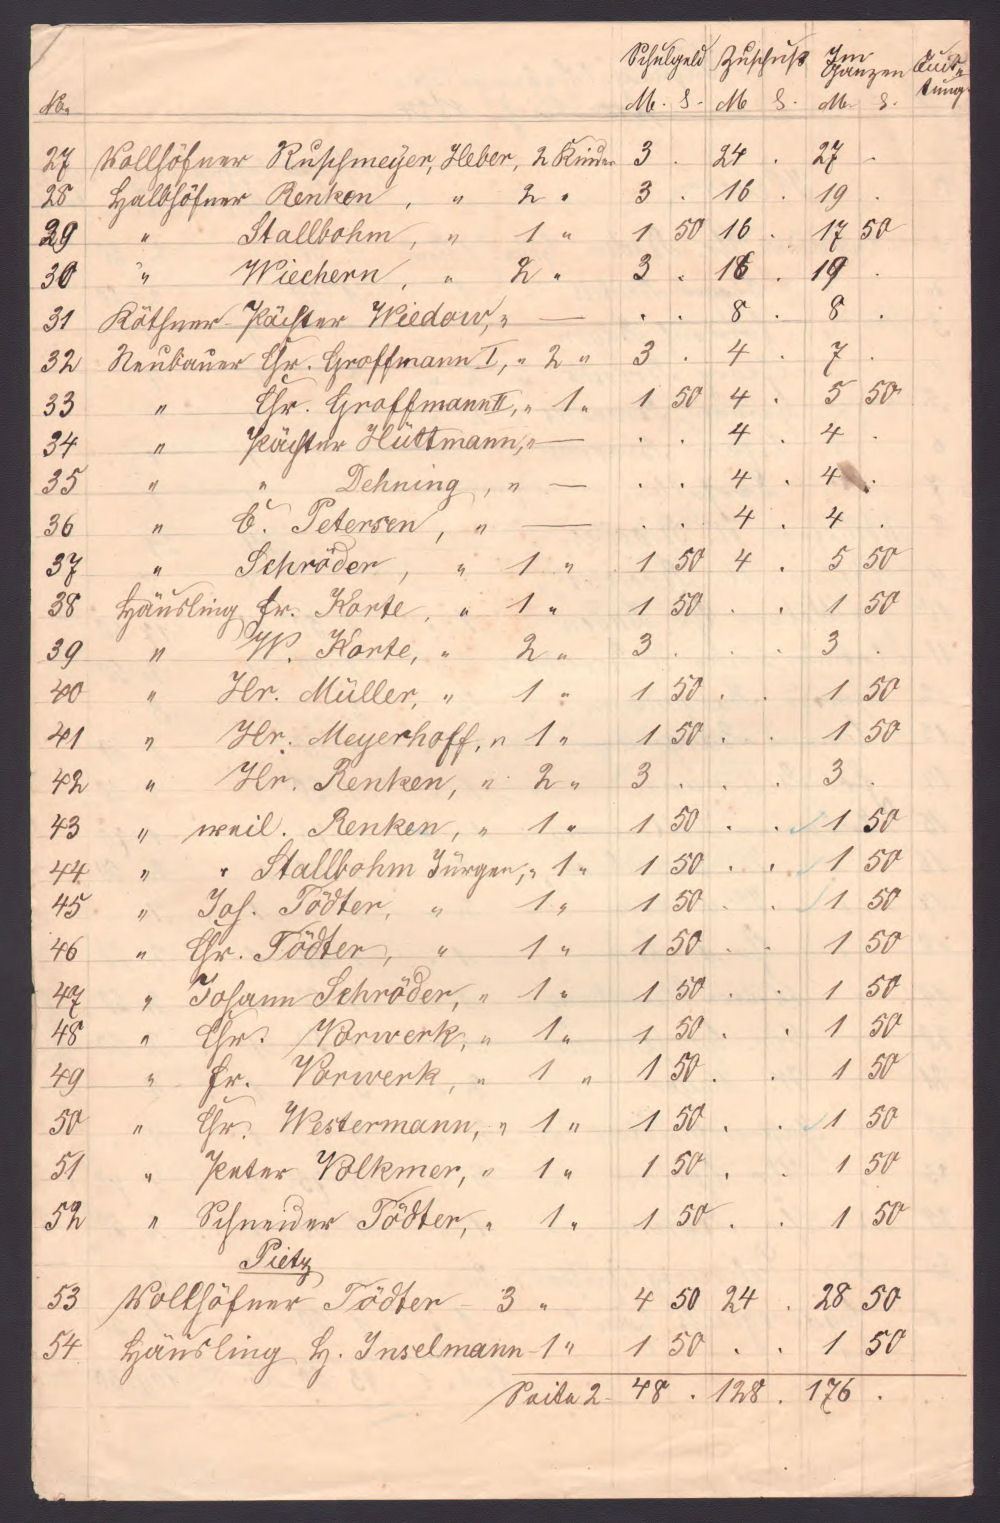 No. Schulgeld Zuschuß Im Ganzen Quit-tung
M. S. M S. M. S.
27 Vollhöfner Ruschmeyer, Heber, 2 Kinder 3 . 24 . 27 .
28 Halbhöfner Renken, " 2 " 3 . 16 . 19 .
29 " Stallbohm, " 1 " 1 50 16 . 17 50
30 " Wiechern, " 2 " 3 . 16 . 19 .
31 Köthner-Pächter Wiedow, " — . . 8 . 8 .
32 Neubauer Chr. Groffmann I, " 2 " 3 . 4 . 7 .
33 " Chr. Groffmann II, " 1 " 1 50 4 . 5 50
34 " Pächter Hüttmann, " — . . 4 . 4 .
35 " " Dehning, " — . . 4 . 4 .
36 " C. Petersen, " — . . 4 . 4 .
37 " Schröder, " 1 " 1 50 4 . 5 50
38 Häusling Fr. Korte, " 1 " 1 50 . . 1 50
39 " W. Korte, " 2 " 3 . . . 3 .
40 " Hr. Müller, " 1 " 1 50 . . 1 50
41 " Hr. Meyerhoff, " 1 " 1 50 . . 1 50
42 " Hr. Renken, " 2 " 3 . . . 3 .
43 " weil. Renken, " 1 " 1 50 . . 1 50
44 " " Stallbohm Jürgen, " 1 " 1 50 . . 1 50
45 " Joh. Tödter, " 1 " 1 50 . . 1 50
46 " Chr. Tödter, " 1 " 1 50 . . 1 50
47 " Johann Schröder, " 1 " 1 50 . . 1 50
48 " Chr. Vorwerk, " 1 " 1 50 . . 1 50
49 " Fr. Vorwerk, " 1 " 1 50 . . 1 50
50 " Chr. Westermann, " 1 " 1 50 . . 1 50
51 " Peter Volkmer, " 1 " 1 50 . . 1 50
52 " Schneider Tödter, " 1 " 1 50 . . 1 50
Pietz
53 Vollhöfner Tödter - 3 " 4 50 24 . 28 50
54 Häusling H. Inselmann - 1 " 1 50 . . 1 50
Seite 2 - 48 . 128 . 176 .